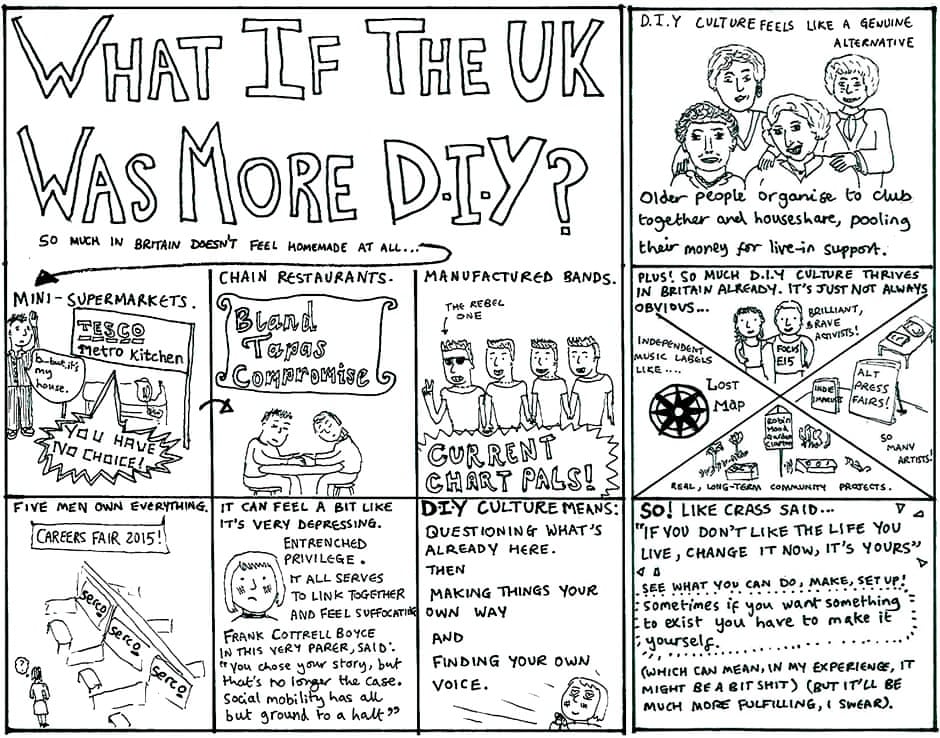 WHAT IF THE UK
WAS MORE D.I.Y?
SO MUCH IN BRITAIN DOESN'T FEEL HOMEMADE AT ALL...
MINI-SUPERMARKETS.
TESCO
Metro Kitchen
b...but it's
my
house.
YOU HAVE
NO CHOICE!
CHAIN RESTAURANTS.
Bland
Tapas
Compromise
MANUFACTURED BANDS.
THE REBEL
ONE
CURRENT
CHART PALS!
FIVE MEN OWN EVERYTHING.
CAREERS FAIR 2015!
serco
serco
serco
?
IT CAN FEEL A BIT LIKE
IT'S VERY DEPRESSING.
ENTRENCHED
PRIVILEGE.
IT ALL SERVES
TO LINK TOGETHER
AND FEEL SUFFOCATING
FRANK COTTRELL BOYCE
IN THIS VERY PAPER, SAID:
"You chose your story, but
that's no longer the case.
Social mobility has all
but ground to a halt"
D.I.Y CULTURE MEANS:
QUESTIONING WHAT'S
ALREADY HERE.
THEN
MAKING THINGS YOUR
OWN WAY
AND
FINDING YOUR OWN
VOICE.
D.I.Y CULTURE FEELS LIKE A GENUINE
ALTERNATIVE
Older people organise to club
together and houseshare, pooling
their money for live-in support.
PLUS! SO MUCH D.I.Y CULTURE THRIVES
IN BRITAIN ALREADY. IT'S JUST NOT ALWAYS
OBVIOUS...
BRILLIANT,
BRAVE
ACTIVISTS!
FOCUS
E15
INDEPENDENT
MUSIC LABELS
LIKE....
LOST
MAP
INDIE
ALT
PRESS
FAIRS!
SO
MANY
ARTISTS!
Robin
Hood
Garden
REAL, LONG-TERM COMMUNITY PROJECTS.
SO! LIKE CRASS SAID...
"IF YOU DON'T LIKE THE LIFE YOU
LIVE, CHANGE IT NOW, IT'S YOURS"
SEE WHAT YOU CAN DO, MAKE, SET UP!
Sometimes if you want something
to exist you have to make it
yourself.
(WHICH CAN MEAN, IN MY EXPERIENCE, IT
MIGHT BE A BIT SHIT) (BUT IT'LL BE
MUCH MORE FULFILLING, I SWEAR).